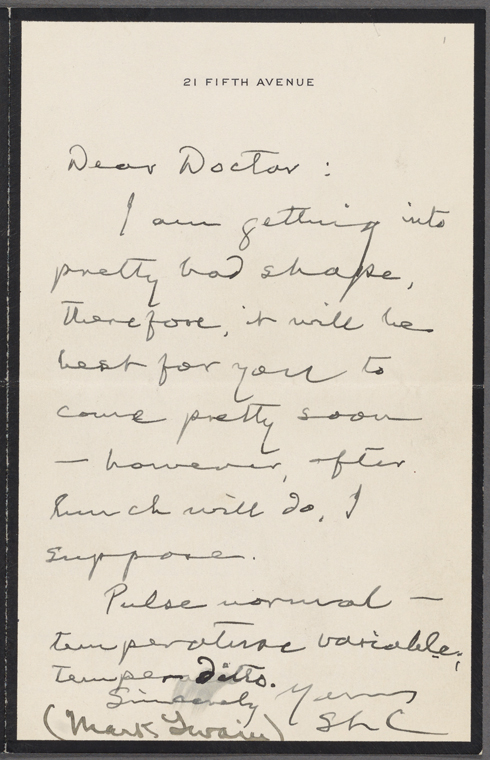 21 FIFTH AVENUE
Dear Doctor:
I am getting into
pretty bad shape,
therefore, it will be
best for you to
come pretty soon
— however, after
lunch will do, I
suppose.
Pulse normal —
temperature variable;
temper ditto.
Sincerely Yours
SLC
(Mark Twain)